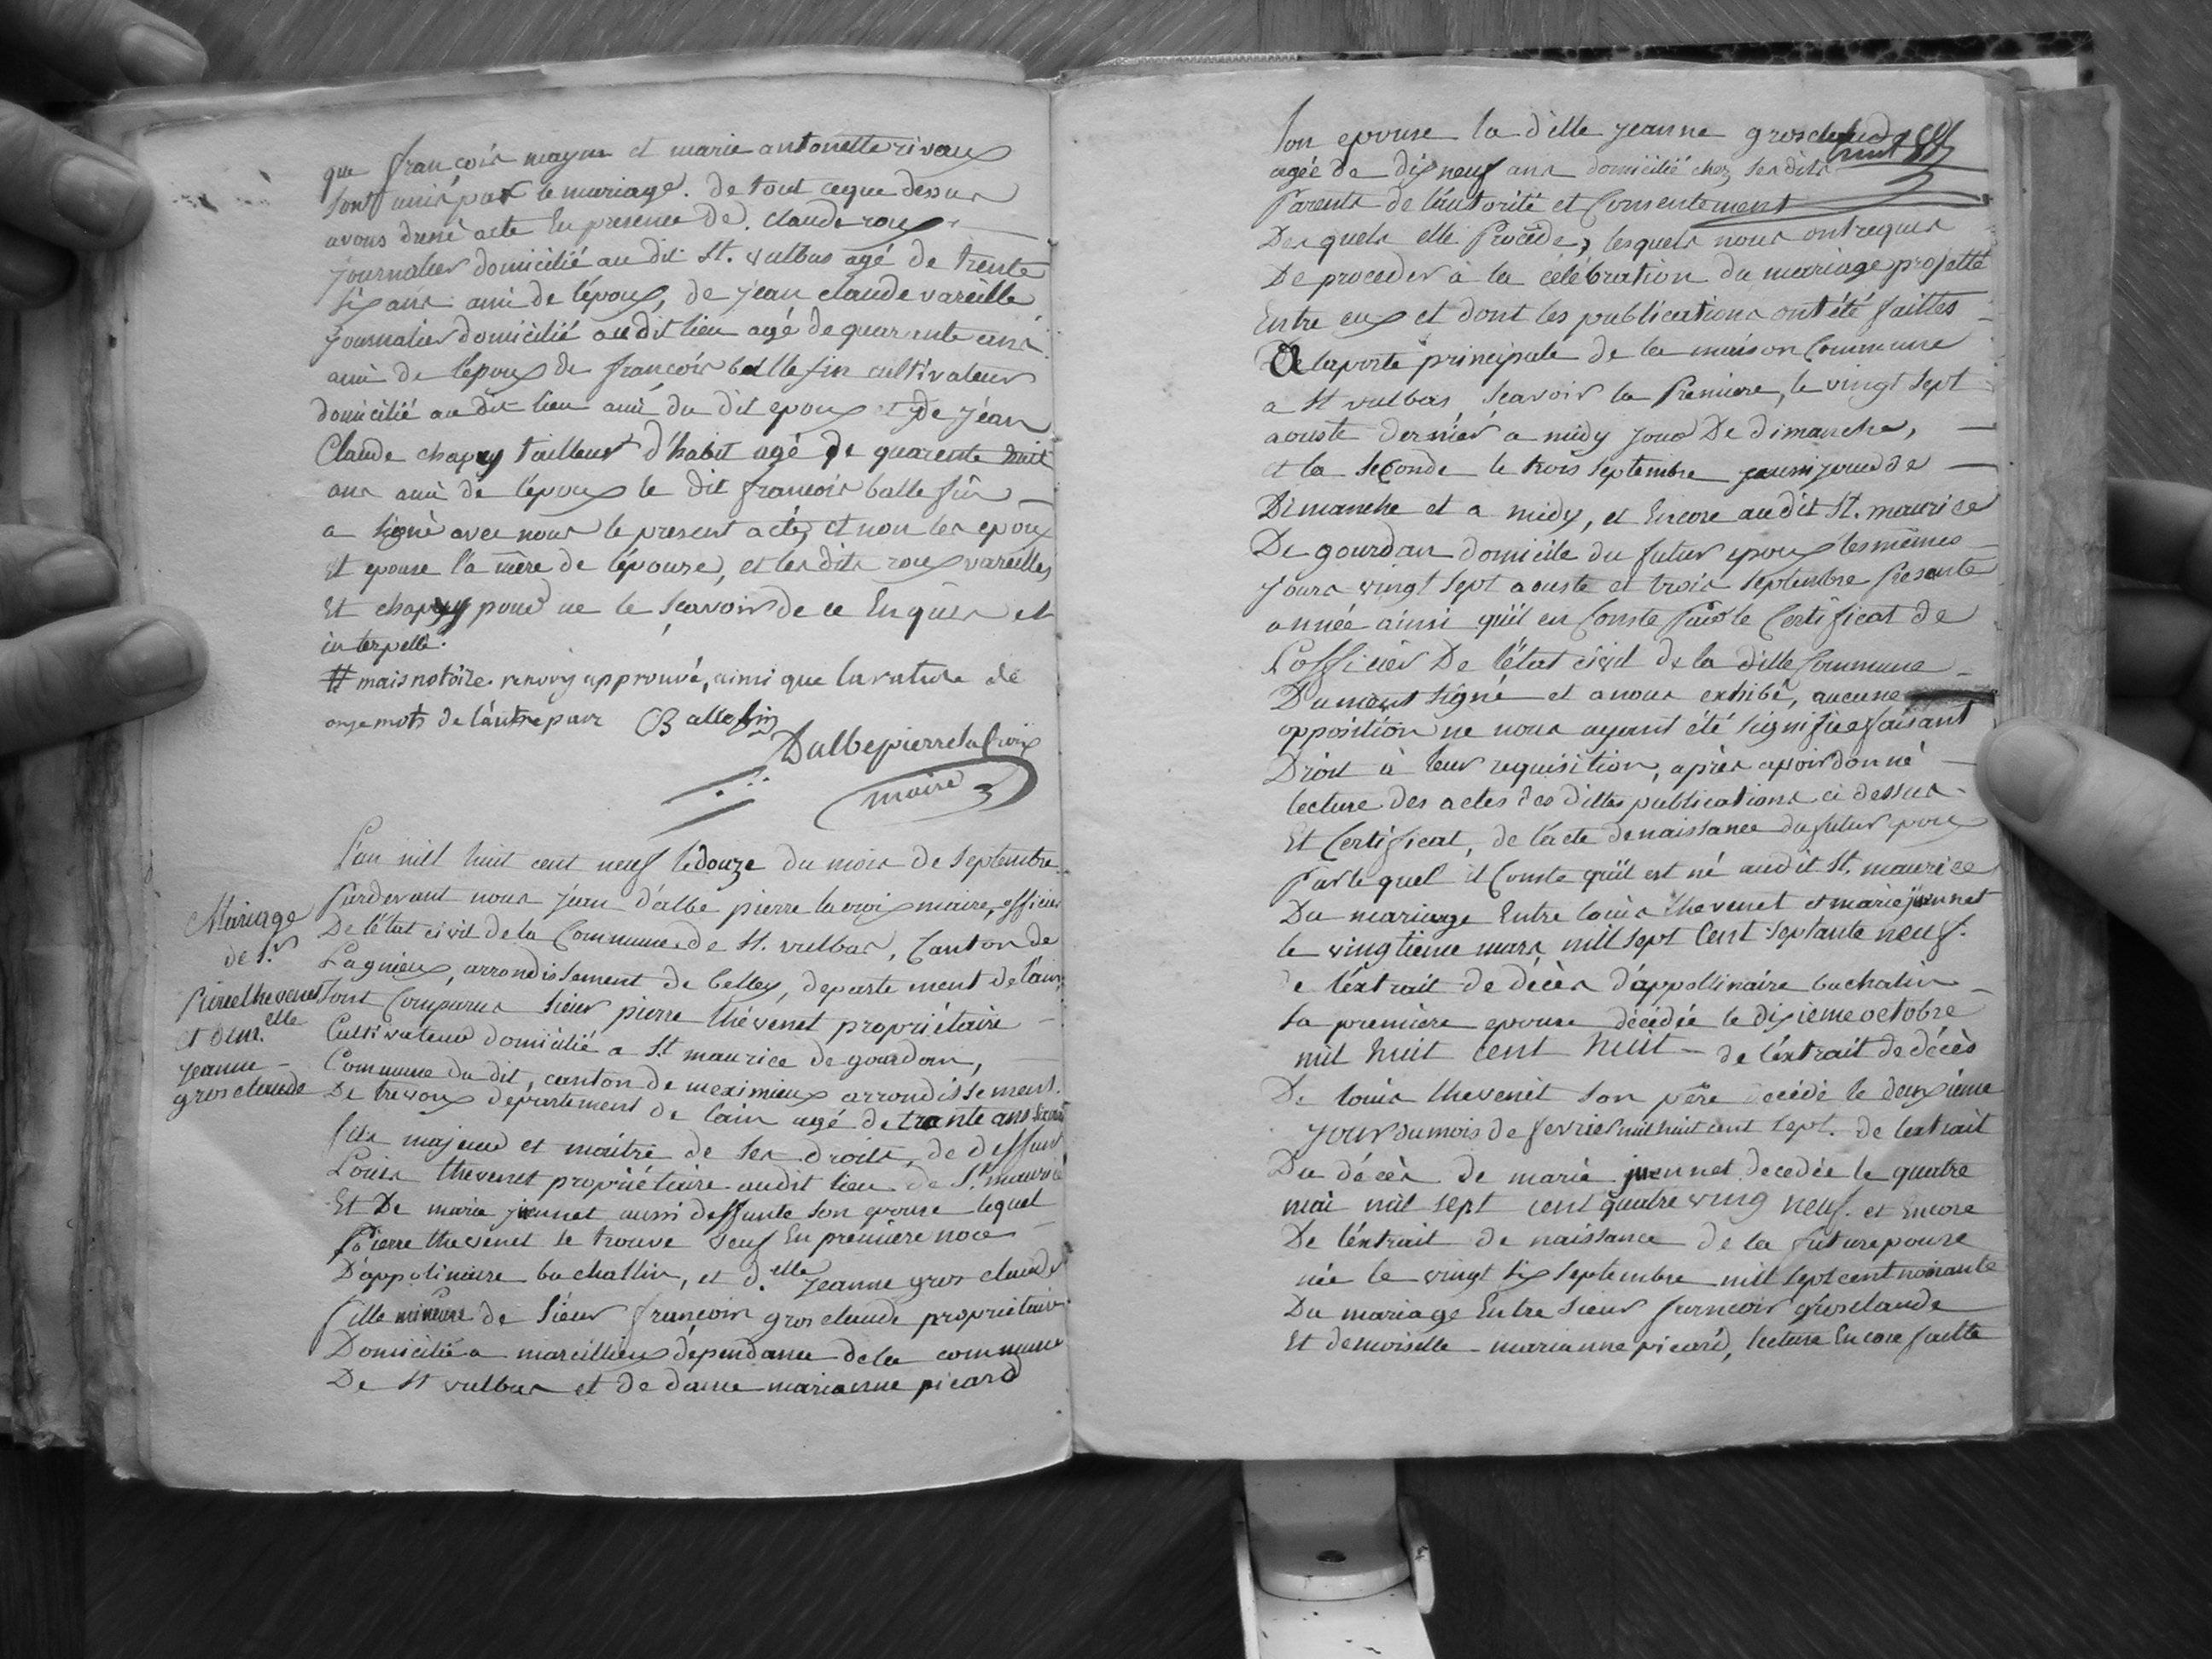 que françois mayon et marie antonette rivaux
sont unis par le mariage. de tout ceque dessus
avons dressé acte En presence de. claude roux
journalier domicilié au dit St. vulbas agé de trente
six ans ami de l'époux, de jean claude vareille
journalier domicilié au dit lieu agé de quarante ans
ami de l'époux de françois ballefin cultivateur
domicilié au dit lieu ami du dit epoux et de jéan
Claude chapuy tailleur d'habit agé de quarente huit
ans ami de l'epoux le dit francois balle fin
a signé avec nous le present acte, et non les epoux
et epouse la mère de l'épouze, et les dits roux vareilles
Et chapuy pour ne le scavoir de ce Enquis et
interpellé.
# mais notoire renvoy approuvé, aimi que la rature de
onze mots de l'autre part Ballefin
Dalbepierrelacroix
maire
L'an mill huit cent neuf le douze du mois de septembre
Pardevant nous jean d'albe pierre lacroix maire, officier
De l'état civil de la Commune de St. vulbas, Canton de
Lagnieux, arrondissement de belley, departement de l'ain
Mariage
de Sr.
Pierre thevenet
et dem.elle
jeanne
gros claude
Sont Comparus sieur pierre thévenet propriétaire
Cultivateur domicilié a St maurice de gourdan,
Commune du dit, canton de meximieux arrondissement
De trevoux departement de l'ain agé de trante ans
fils majeur et maitre de ses droits, de deffunt
Louis thevenet propriétaire audit lieu de St. maurice
Et De marie juennet aussi deffunte son epouse lequel
Pierre thevenet se trouve veuf En première noce
D'appolinaire buchallin, et d.elle jeanne gros claude
fille mineure de sieur françois gros claude propriétaire
Domicilié a marcillieux dépendance dela commune
De St vulbas et de dame marianne picard
son epouse la d'elle jeanne grosclaude
agée de dix neuf ans domicilié chez ses dits
Parents de l'autorité et Consentement
Des quels elle Procède, lesquels nous ont requis
De proceder à la célébration du mariage projetté
Entre eux et dont les publications ont été faittes
De laporte principale de la maison Commune
a St vulbas, scavoir la Premiere, le vingt sept
aouste dernier a midy jour De dimanche,
et la seconde le trois septembre aussi jour de
Dimanche et a midy, et Encore au dit St. maurice
De gourdan domicile du futur epoux les mêmes
jours vingt sept aouste et trois septembre Presente
année ainsi qu'il en Conste Par le Certificat de
L'officier De l'état civil de la ditte Commune
Dument signé et a nous exhibé, aucune
opposition ne nous ayant été signifiée faisant
Droit à leur requisition, après avoir donné
lecture des actes des dittes publications ci dessus
Et Certificat, de l'acte de naissance du futur epoux
Par lequel il Conste qu'il est né audit St. maurice
Du mariage Entre louis thevenet et marie juennet
le vingtième mars mill sept Cent septante neuf.
de l'extrait de décès d'appollinaire buchalin
sa première epouse décédée le dixieme octobre
mil huit cent huit de l'extrait de décès
De louis thevenet son père decédé le deuxième
jour du mois de fevrier mil huit cent sept. de l'extrait
Du décès de marie juennet decedée le quatre
mai mil sept cent quatre ving neuf. et Encore
De l'extrait de naissance de la future pouse
née le vingt six septembre mill sept cent nonante
Du mariage Entre sieur francois grosclaude
Et demoiselle marianne picard, lecture Encore faitte